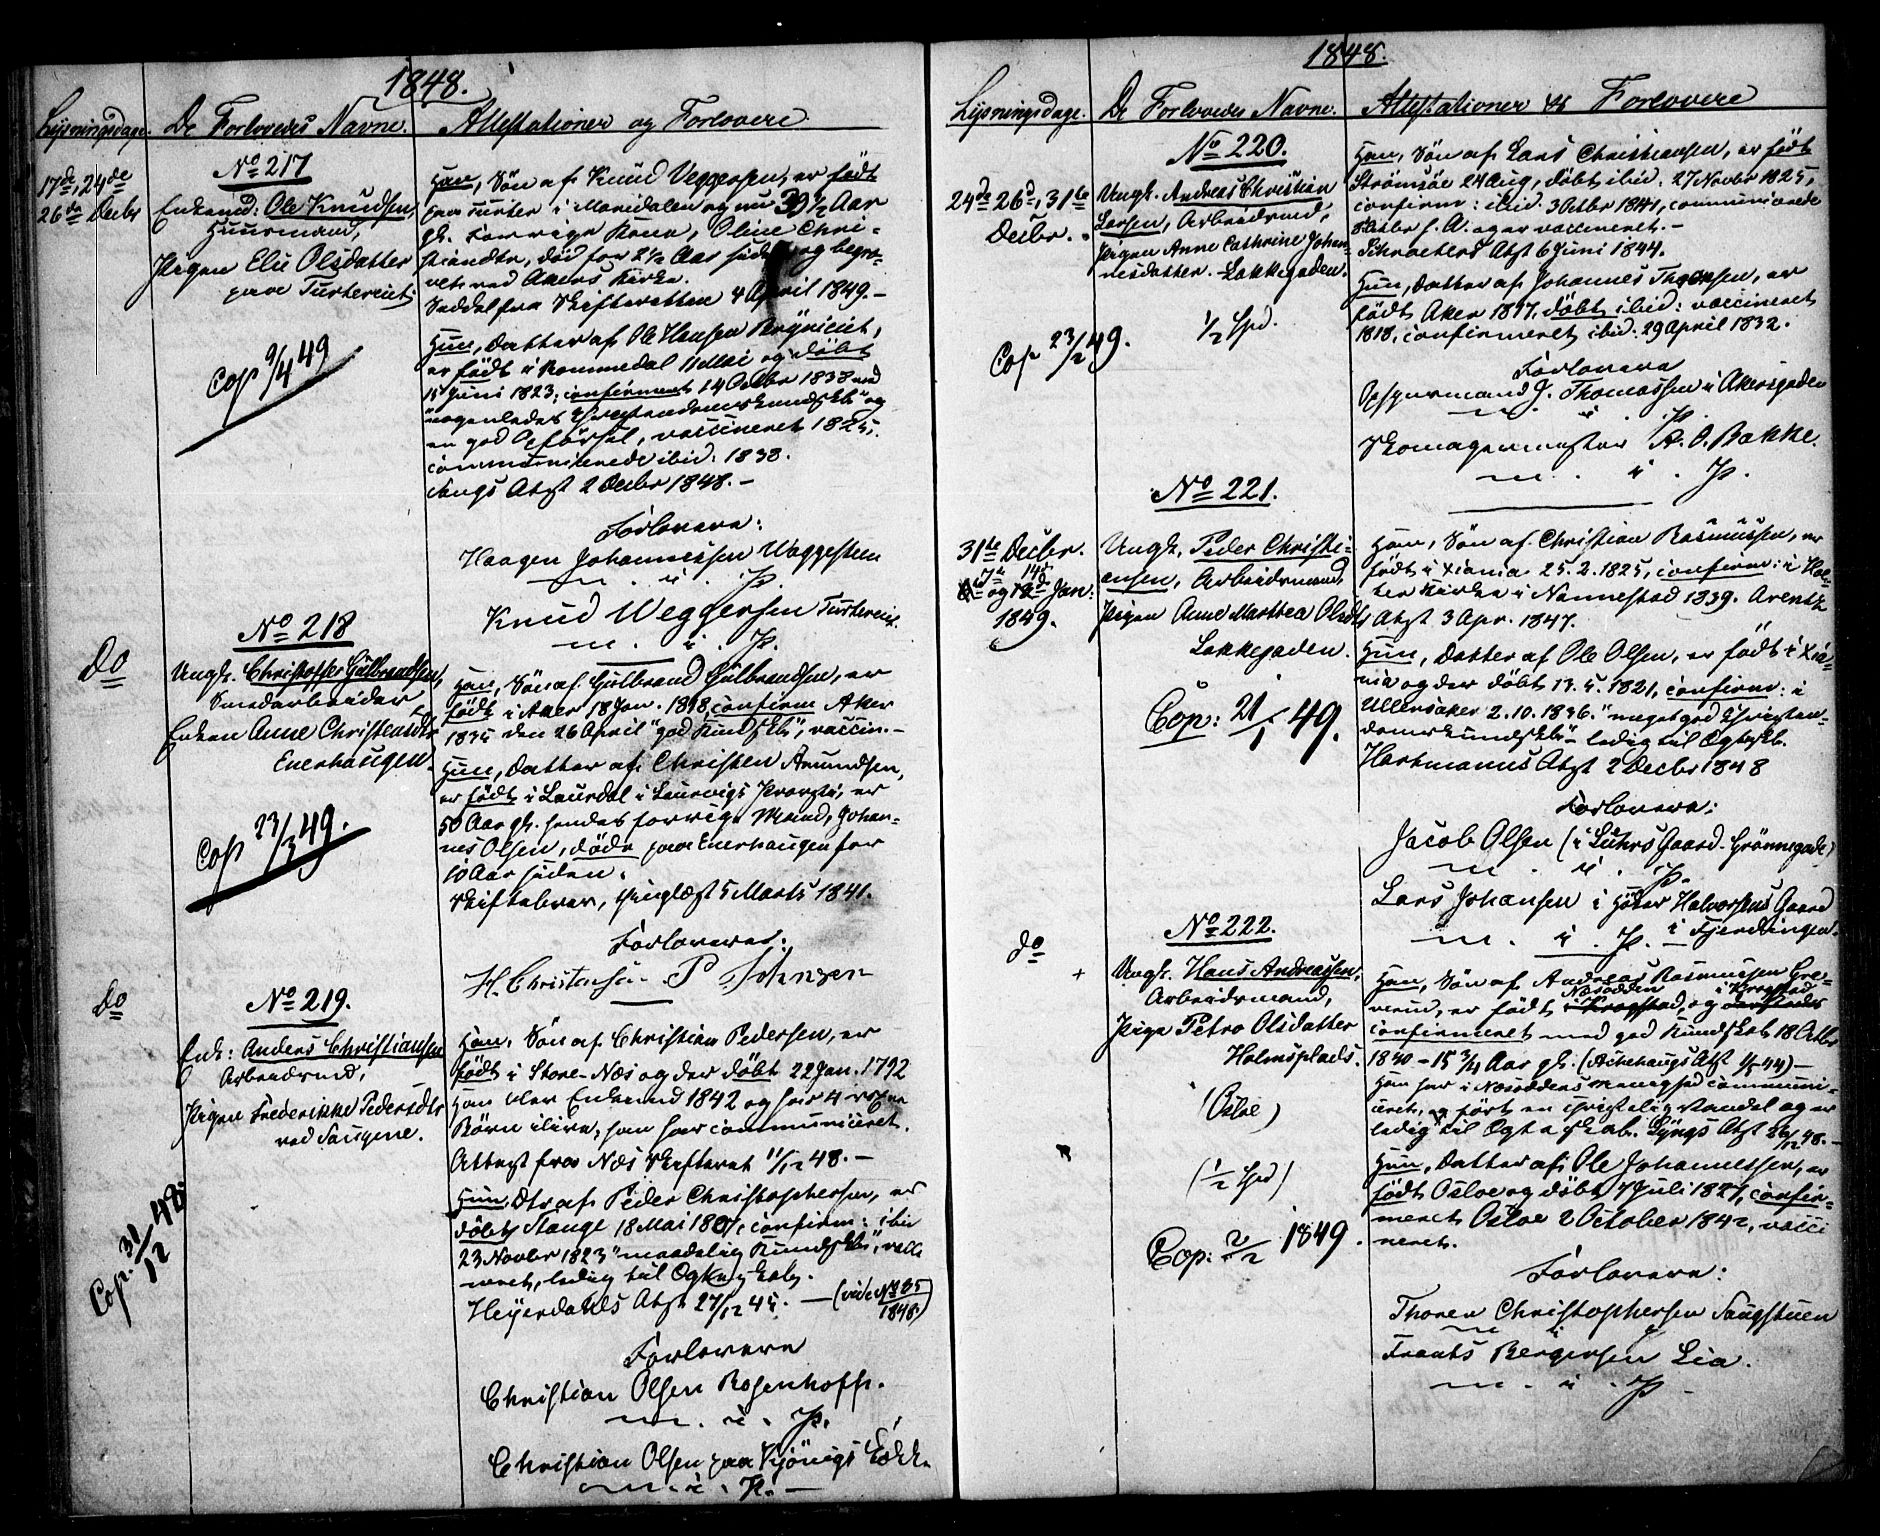 1848.
Lysningsdage. De Forlovedes Navne. Attestationer og Forlovere
17de, 24de
26de Decbr
No 217
Enkemd: Ole Knudsen,
Huusmand,
Pigen Elie Olsdatter
paa Turtereiet
Cop 9/4 49
Han, Søn af Knud Veggersen, er født
paa Turter i Maridalen og nu 39 1/2 Aar
gl. Forrige Kone, Oline Chri-
stiandtr, død for 2 1/2 Aar siden og begra-
vet ved Akers Kirke.
Seddel fra Skifteretten 4 April 1849.-
Hun, Datter af Ole Hansen
er født i Rommedal 11 Mai og døbt
15 Juni 1823, confirmeret 14 Octbr 1838 med
"nogenledes Christendomskundskb" og
en god Opførsel, vaccineret 1825.
communicerede ibid. 1838.
Attst 2 Decbr 1848.-
Forlovere:
Haagen Johannessen Waggesteen
m. i. P.
Knud Weggersen Turtereiet.
m. i. P.
Do
No 218
Ungk. Christoffer Gulbrandsen,
Smedarbeider
Enken Anne Christensdtr
Enerhaugen.
Cop 23/3 49.
Han, Søn af Gulbrand Gulbrandsen, er
født i Aker 18 Jan. 1818, confirm Aker
1835 den 26 April "god Kundskb", vaccin.-
Hun, Datter af Christen Amundsen,
er født i Laurdal i Laurvigs Provsti, er
50 Aar gl. hendes forrige Mand, Johan-
nes Olsen, døde paa Enerhaugen for
10 Aar siden.
Skiftebrev, thinglæst 5 Marts 1841.
Forlovere:
H. Christensen P. Johnsen
Do
No 219.
Enk: Anders Christiansen
Arbeidsmd,
Pigen Frederikke Pedersdtr
ved Saugene.
Cop. 31/12 48
Han, Søn af Christian Pedersen, er
født i Store-Næs og der døbt 22 Jan. 1792
Han blev Enkemd 1842 og har 4 voxne
Børn ilive, han har communiceret.
Attest fra Næs Skifteret 11/12 48.-
Hun, Dtr af Peder Christophersen, er
døbt Stange 18 Mai 1807, confirm: ibid
23 Novbr 1823 "maadelig Kundskb",
neret, ledig til Ægteskab.
Heyerdahls Attst 27/12 45. - (vide No 35
1848)
Forlovere
Christian Olsen Rosenhoff.
m. i. P.
Christian Olsen paa
m. i. P. -
1848.
Lysningsdage. De Forlovedes Navne. Attestationer & Forlovere
24de 26de, 31te
Decbr.
No 220.
Ungk. Andreas Christian
Larsen, Arbeidsmd,
Pigen Anne Cathrine Johan-
nesdatter. Lakkegaden.
1/2 Spd.
Cop 23/2 49.
Han, Søn af Lars Christiansen, er født
Strømsøe 24 Aug, døbt ibid. 27 Novbr 1825,
confirm: ibid. 3 Octbr 1841, communicerede
s. A. og er vaccineret.-
Schroeters Attst 6 Juni 1844.
Hun, Datter af Johannes Thoresen, er
født Aker 1817, døbt ibid: vaccineret
1818, confirmeret ibid. 29 April 1832.
Forlovere
Opsynsmand J. Thomassen i Akersgaden
m. i. P.
Skomagermester A. O. Bakke.
m. i. P.
31te Decbr.
7de 14de
og Jan.
1849.
No 221.
Ungk. Peder Christi-
ansen, Arbeidsmand,
Pigen Anne Marthea Olsdtr
Lakkegaden.
Cop: 21/1 49.
Han, Søn af Christian Rasmussen, er
født i Xiania 25.2.1825, confirm: i Hol-
ter Kirke i Nannestad 1839. Arentz
Attst 3 Apr. 1847.
Hun, Datter af Ole Olsen, er født i Xia-
nia og der døbt 13.5.1821, confirm: i
Ullensaker 2.10.1836. "meget god Christen-
domskundskb" - ledig til Ægtesk.
Hartmanns Attst 2 Decbr 1848
Forlovere:
Jacob Olsen (i Lührs Gaard. Grønnegade)
m. i. P.
Lars Johansen i Halvorsens Gaard
m. i. P. - i Fjerdingen.
do
No 222.
Ungk. Hans Andreassen,
Arbeidsmand,
Pige Petro Olsdatter
Holmsplads.
(Osloe)
(1/2 Spd)
Cop: 2/2 1849.
Han, Søn af Andreas Rasmussen Gre-
verud, er født Næsodden i Krogstad, og i Krogstad
confirmeret med god Kundskab 18 Octbr
1840 - 15 3/4 Aar gl. (Askehaugs Attst 1/5 44) -
Han har i Næsoddens Menighed communi-
ceret, og ført en christelig Vandel og er
ledig til Ægteskab. Lyngs Attst 26/12 48.-
Hun, Datter af Ole Johannessen, er
født Osloe og døbt 7 Juli 1827, confir-
meret Osloe 2 October 1842, vacci
neret.
Forlovere:
Thoren Christophersen Saugstuen
m i P
Frants Bergersen Lia.
m. i. P. -